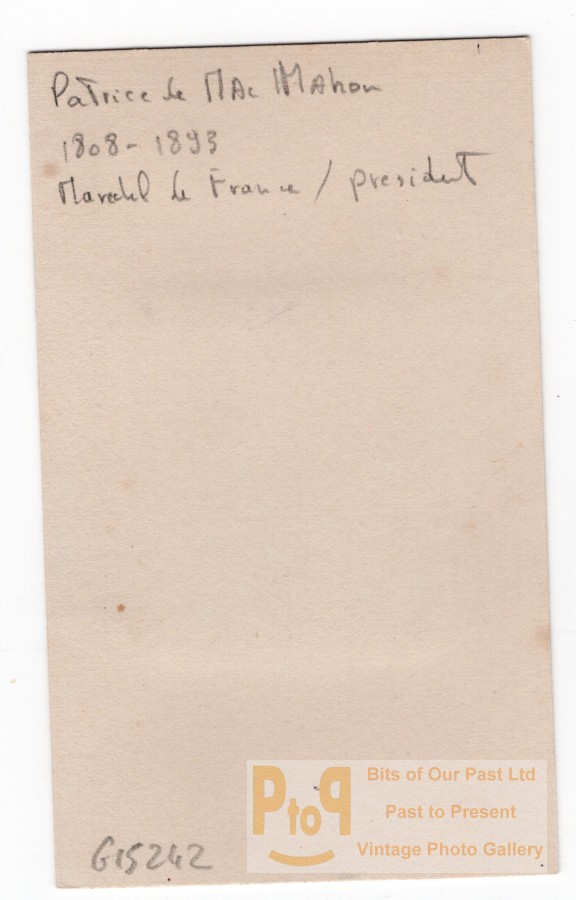 Patrice de Mac Mahon
1808 - 1893
Marechl de France / president
G15242
PtoP
Bits of Our Past Ltd
Past to Present
Vintage Photo Gallery